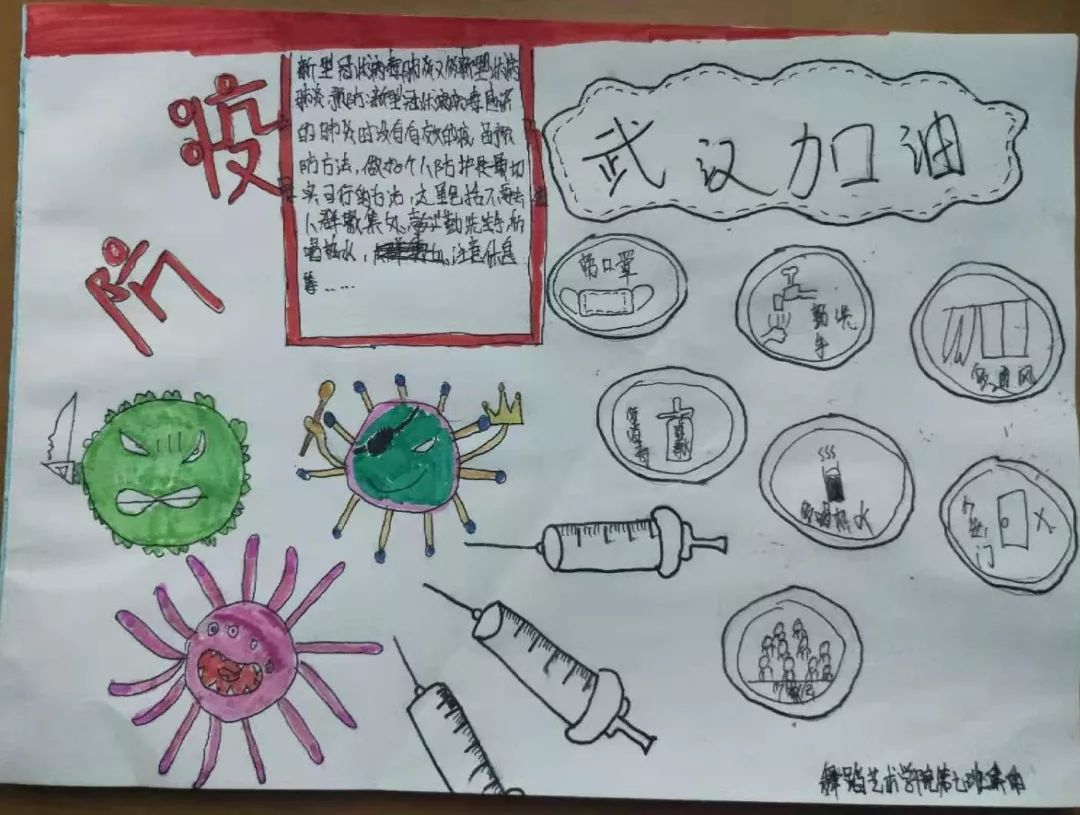 防疫
新型冠状病毒肺炎又称新型冠状病
肺炎.预防:新型冠状病毒感染
的肺炎时没有有效的疫苗预
防方法，做好个人防护是最切
实可行的方法，这里包括不要去
人群聚集处，勤洗手
喝热水，注意休息
等……
武汉加油
带口罩
勤洗
手
多通风
常消毒
多喝热水
不出门
舞蹈艺术学院第七班